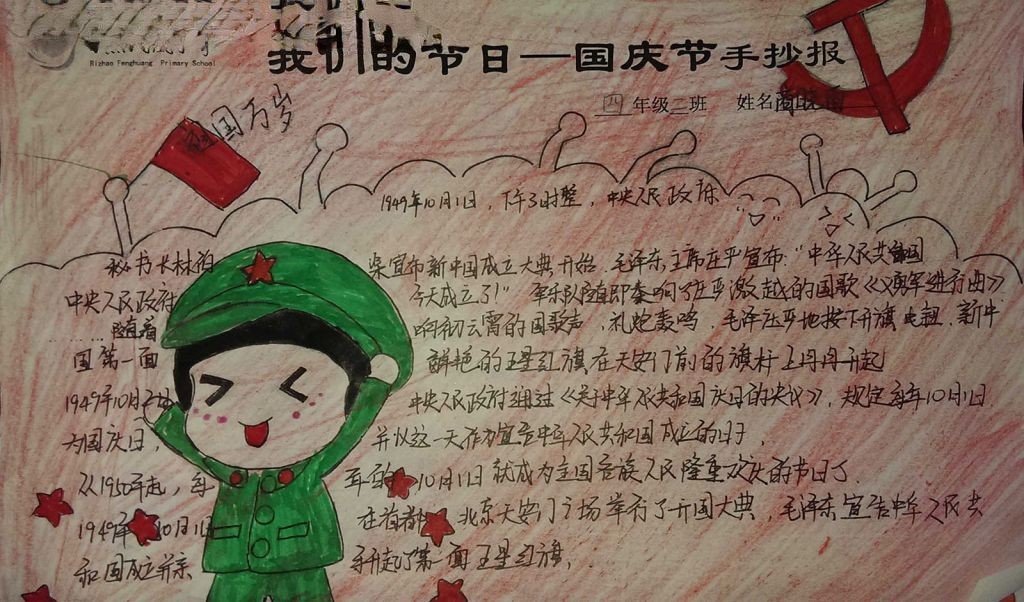 Rizhao Fenghuang Primary School
我们的节日—国庆节手抄报
四年级二班 姓名
祖国万岁
1949年10月1日，下午3时整，中央人民政府
秘书长林伯渠宣布新中国成立大典开始，毛泽东主席庄严宣布："中华人民共和国
中央人民政府今天成立了！"军乐队随即奏响了庄严激越的国歌《义勇军进行曲》
随着响彻云霄的国歌声，礼炮轰鸣，毛泽庄严地按下升旗电钮，新中
国第一面鲜艳的五星红旗在天安门前的旗杆上冉冉升起
1949年10月2日中央人民政府通过《关于中华人民共和国国庆日的决议》，规定每年10月1日
为国庆日，并以这一天作为宣告中华人民共和国成立的日子，
从1950年起，每年的10月1日就成为全国各族人民隆重欢庆的节日了
1949年10月1日在首都北京天安门广场举行了开国大典，毛泽东宣告中华人民共
和国成立并亲手升起了第一面五星红旗，